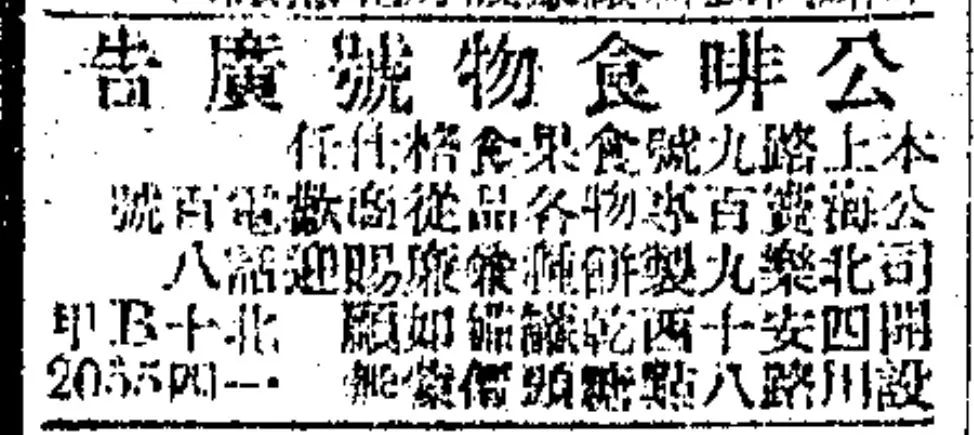 公啡食物號廣告
本公司開設
上海北四川
路竇樂安路
九百九十八
號專製西點
食物餅乾糖
果各種罐頭
食品價
格從廉如蒙
仕商賜顧無
任歡迎
電話北一
百八十四
號 B甲2055